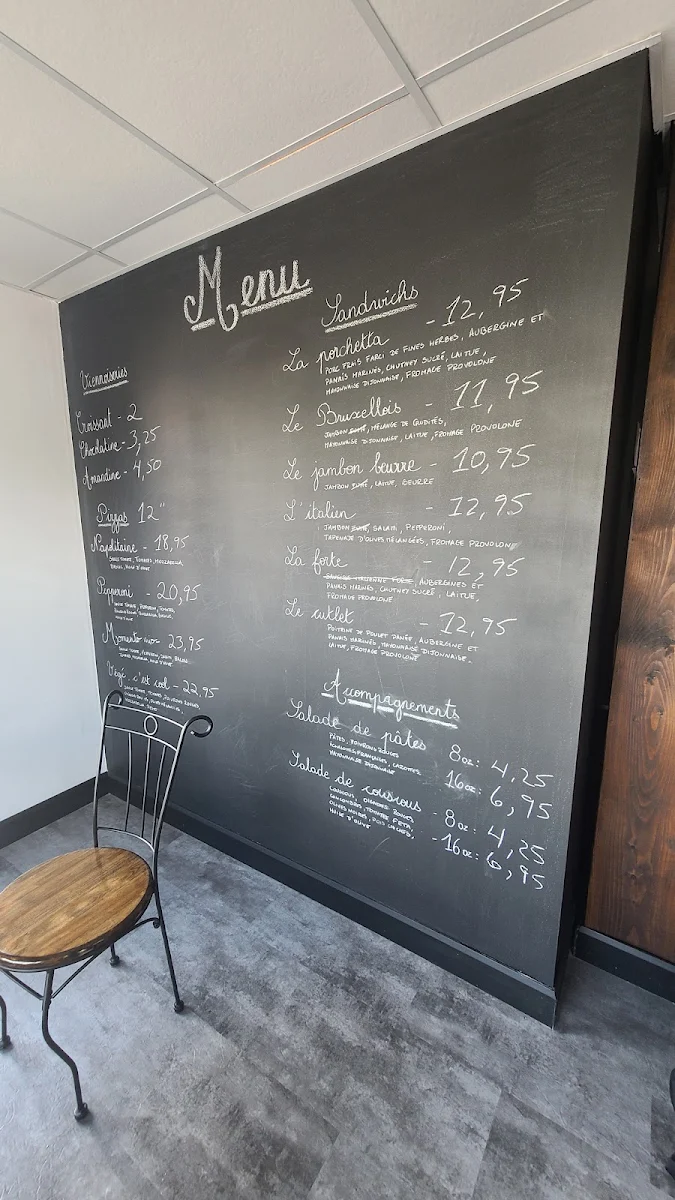 Menu
Viennoiseries
Croissant - 2
Chocolatine - 3,25
Amandine - 4,50
Pizzas 12"
Napolitaine - 18,95
Sauce tomate, tomates, mozzarella
Basilic, huile d'olive
Pepperoni - 20,95
Momento - 23,95
Végé, c'est cool - 22,95
Sandwichs
La porchetta - 12,95
PORC FRAIS FARCI DE FINES HERBES, AUBERGINE ET
PANAIS MARINÉS, CHUTNEY SUCRÉ, LAITUE,
MAYONNAISE DIJONNAISE, FROMAGE PROVOLONE
Le Bruxellois - 11,95
JAMBON, MÉLANGE DE CRUDITÉS,
MAYONNAISE DIJONNAISE, LAITUE, FROMAGE PROVOLONE
Le jambon beurre - 10,95
JAMBON, LAITUE, BEURRE
L'italien - 12,95
JAMBON, SALAMI, PEPPERONI,
TAPENADE D'OLIVES MÉLANGÉES, FROMAGE PROVOLONE
La forte - 12,95
AUBERGINES ET
PANAIS MARINÉS, CHUTNEY SUCRÉ, LAITUE,
FROMAGE PROVOLONE
Le cutlet - 12,95
POITRINE DE POULET PANÉE, AUBERGINE ET
PANAIS MARINÉS, MAYONNAISE DIJONNAISE,
LAITUE, FROMAGE PROVOLONE
Acompagnements
Salade de pâtes 8oz: 4,25
PÂTES, POIVRONS ROUGES
ÉCHALOTES FRANÇAISES, CAROTTES
MAYONNAISE DIJONNAISE
16oz: 6,95
Salade de couscous - 8oz: 4,25
COUSCOUS, OIGNONS ROUGES
CONCOMBRES, TOMATES, FETA,
OLIVES NOIRES, POIS CHICHES,
HUILE D'OLIVE
-16oz: 6,95